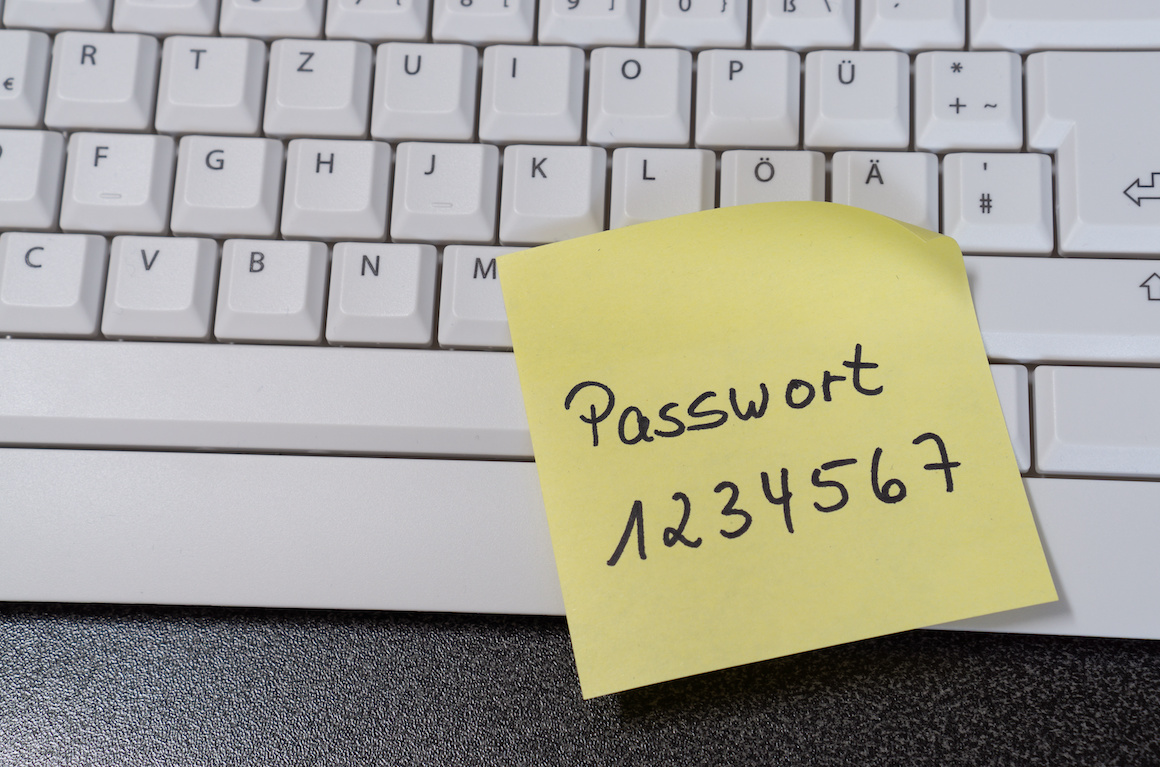 R T Z U I O P Ü * + ~
F G H J K L Ö Ä ' #
C V B N M
Passwort
1234567